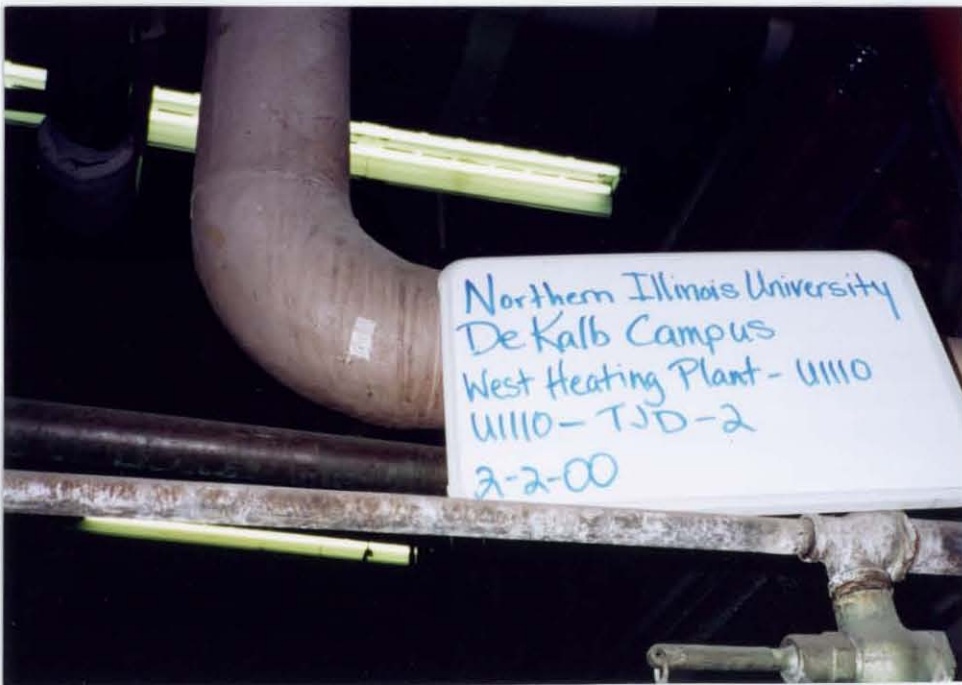 Northern Illinois University
DeKalb Campus
West Heating Plant - U1110
U1110 - TJD-2
2-2-00